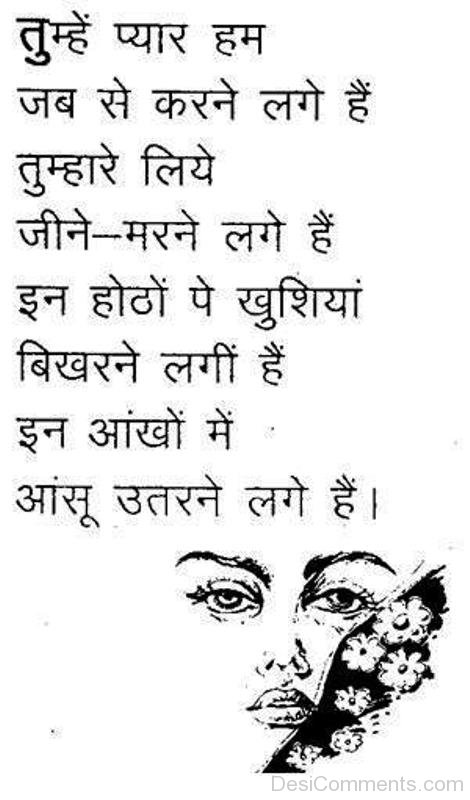 तुम्हें प्यार हम
जब से करने लगे हैं
तुम्हारे लिये
जीने–मरने लगे हैं
इन होठों पे खुशियां
बिखरने लगीं हैं
इन आंखों में
आंसू उतरने लगे हैं।
DesiComments.com